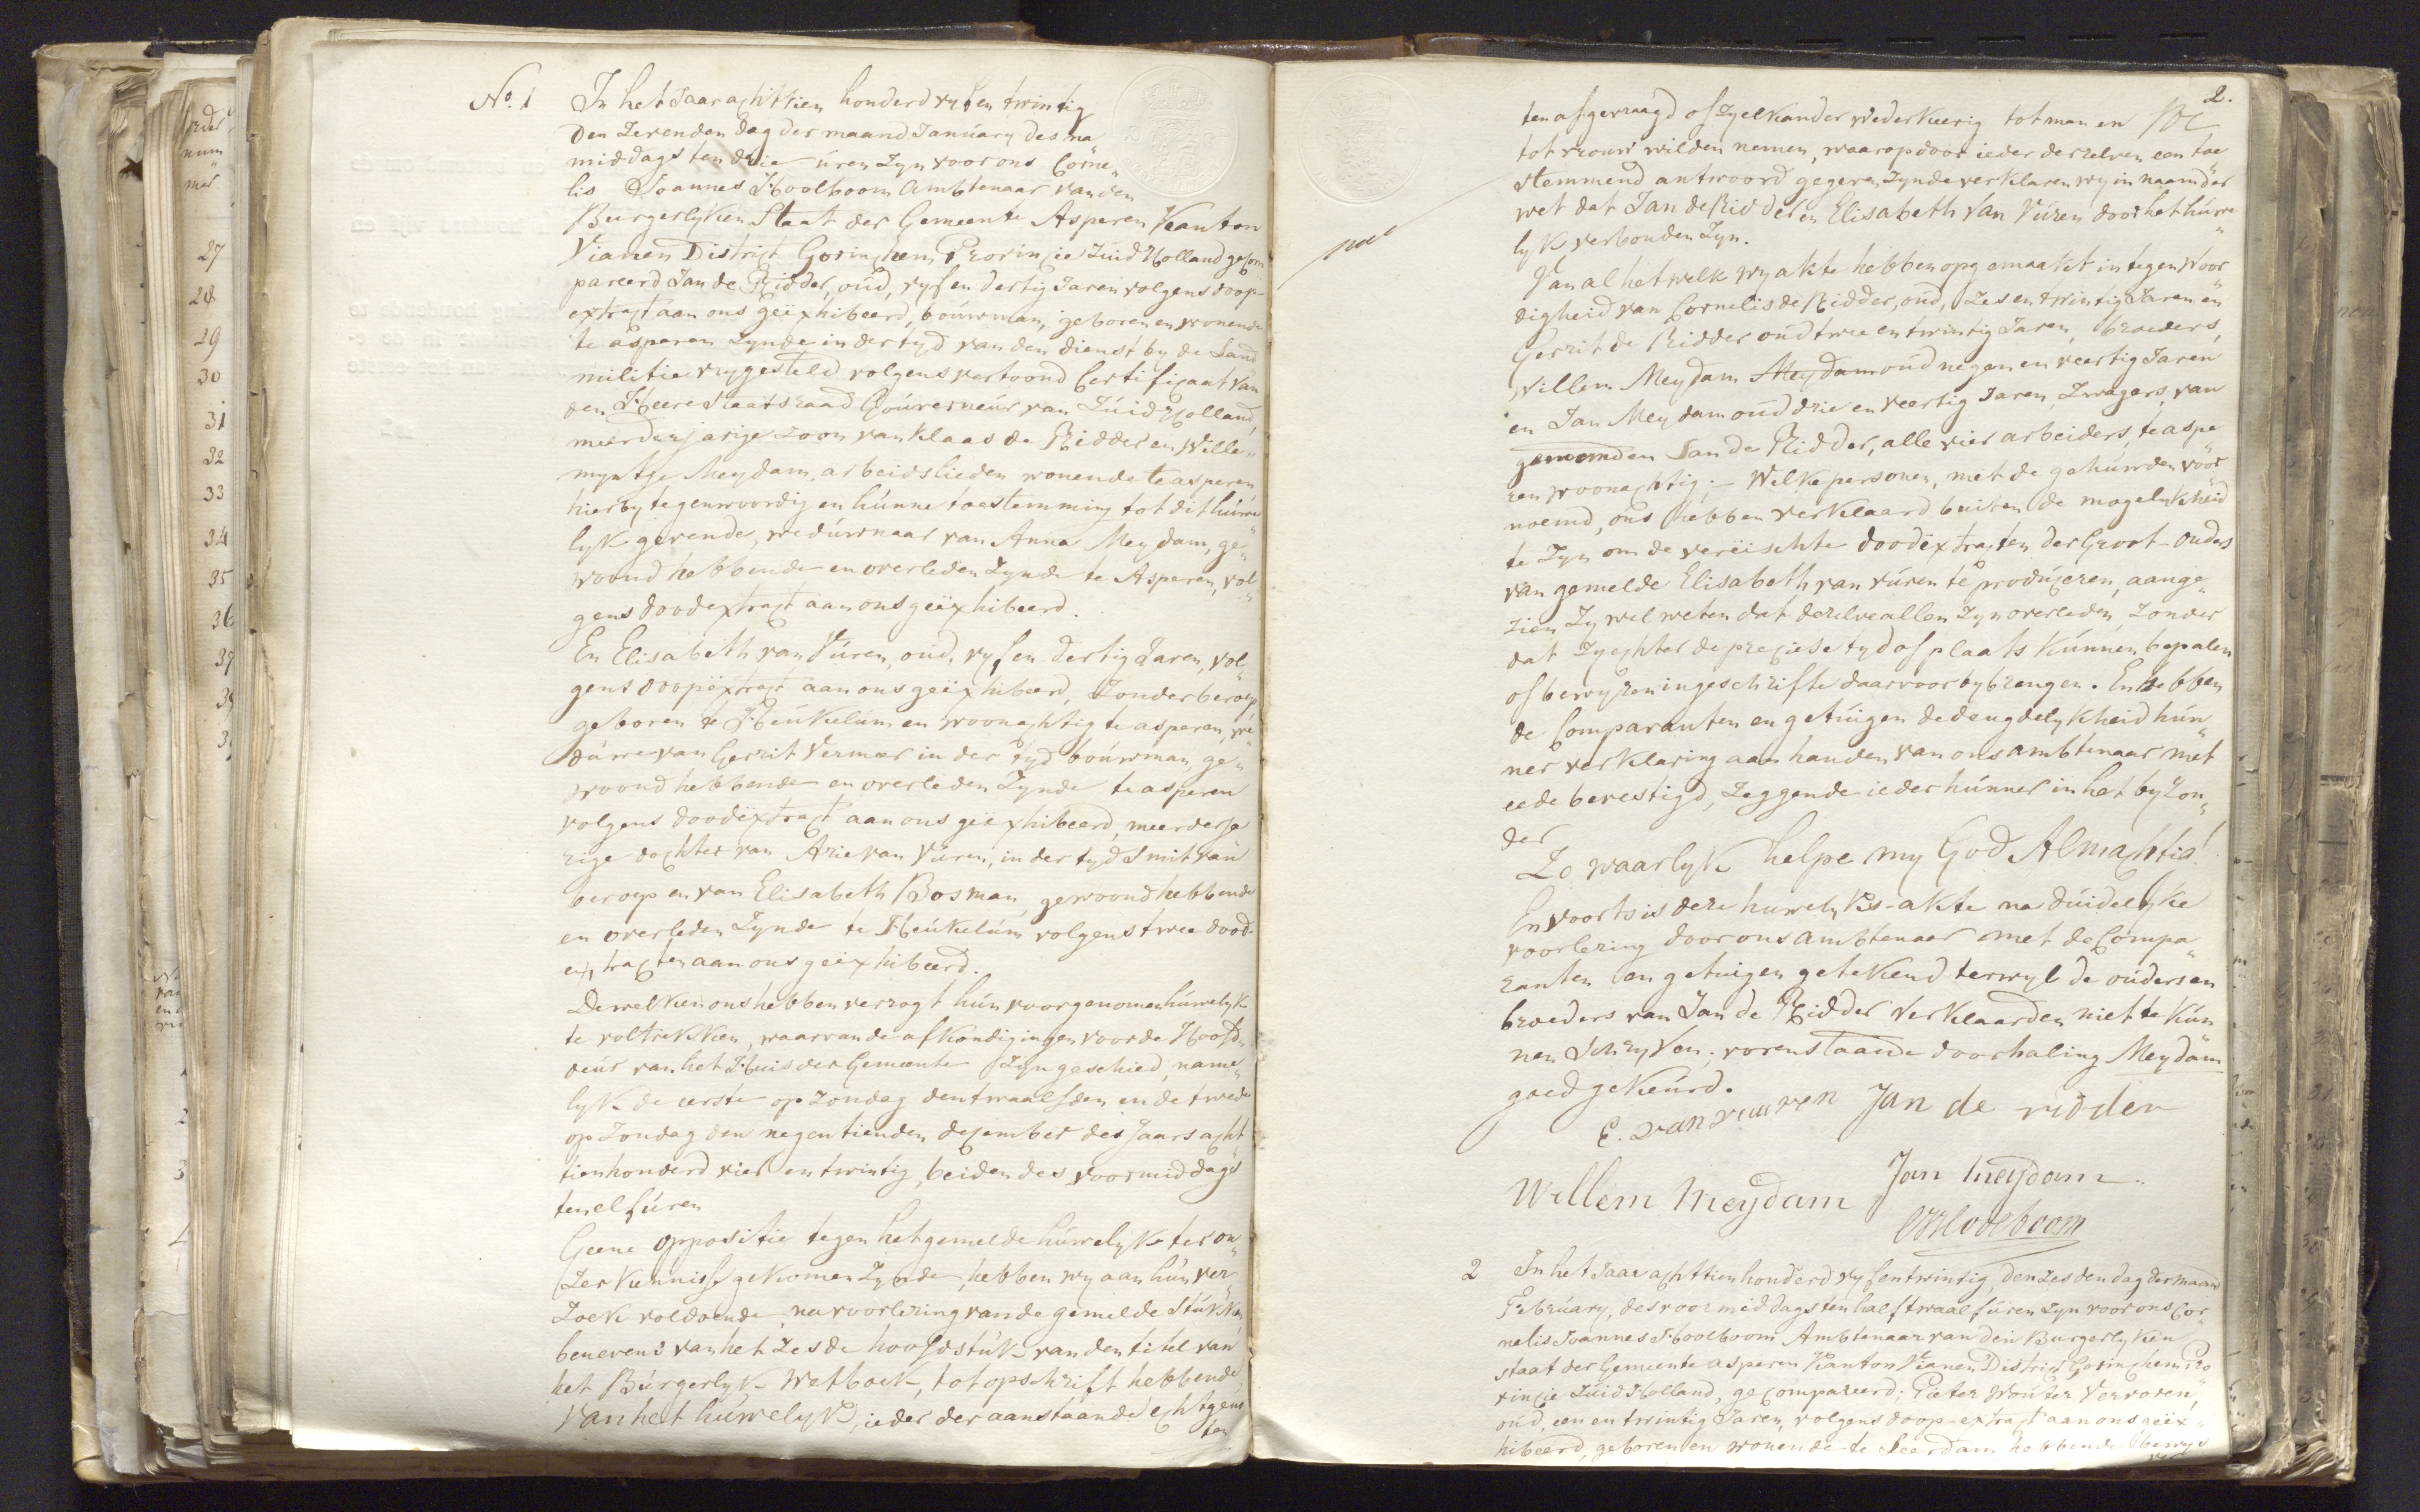 No. 1 In het Jaar achttien honderd vyf en twintig
den Zevenden dag der maand January des na„
middags ten drie uren Zyn voor ons Corne„
lis Joannes Hoolboom Ambtenaar van den
Burgerlyken Staat der Gemeente Asperen Kanton
Vianen District Gorinchem Provincie Zuid Holland gecom
pareerd Jan de Ridder, oud, vyf en dertig Jaren volgens doop-
extract aan ons geëxhibeerd, bouwman, geboren en wonende
te asperen Zynde in der tyd van den dienst by de Land
militie vrygesteld volgens vertoond Certificaat van
den Heere Staatsraad Gouverneur van Zuid Holland,
meerderjarige zoon van Klaas de Ridder en Wille„
myntje Meydam, arbeidslieden wonende te asperen,
hierby tegenwoordig en hunne toestemming tot dit huwe„
lyk gevende, weduwnaar van Anna Meydam, ge„
woond hebbende en overleden Zynde te Asperen, vol„
gens doodextract aan ons geëxhibeerd.
En Elisabeth van Vuren, oud, vyf en dertig Jaren, vol„
gens doopëxtract aan ons geëxhibeerd, Zonder beroep
geboren te Heukelum en woonachtig te asperen, we„
duwe van Gerrit Vermeer in der tyd bouwman, ge„
woond hebbende en overleden Zynde te asperen
volgens doodëxtract aan ons geëxhibeerd, meerderja„
rige dochter van Arie van Vuren, in der tyd Smit van
beroep en van Elisabeth Bosman, gewoond hebbende
en overleden Zynde te Heukelum volgens twee dood-
extracten aan ons geëxhibeerd.
Dewelken ons hebben verzogt hun voorgenomen huwelyk
te voltrekken, waarvan de afkondigingen voor de Hoofd„
deur van het Huis der Gemeente Zyn geschied, name„
lyk de eerste op Zondag den twaalfden en de tweede
op Zondag den negentienden december des Jaars acht„
tienhonderd vier en twintig, beiden des voormiddags
ten elf uren
Geene oppositie tegen het gemelde huwelyk ter on„
Zer kennisse gekomen Zynde, hebben wy aan hun ver„
Zoek voldoende, na voorlezing van de gemelde Stukken
benevens van het Zesde hoofdstuk van den titel van
het Burgerlyk Wetboek, tot opschrift hebbende,
Van het huwelyk, ieder der aanstaande echtgeno„
ten
2.
ten afgevraagd of Zy elkander wederkeerig tot man en
tot vrouw wilden nemen, waarop door ieder derzelven een toe
stemmend antwoord gegeven Zynde verklaren wy in naam der
wet dat Jan de Ridder en Elisabeth Van Vuren door het huwe„
lyk verbonden Zyn.
Van al het welk wy akte hebben opgemaakt in tegenwoor„
digheid van Cornelis de Ridder, oud, Zes en twintig Jaren en
Gerrit de Ridder oud twee en twintig Jaren, broeders,
Willem Meydam Meydam oud negen en veertig Jaren
en Jan Meydam oud drie en veertig Jaren, Zwagers, van
genoemden Jan de Ridder, alle vier arbeiders, te aspe„
ren woonachtig; - Welke personen, met de gehuwden voor„
noemd, ons hebben verklaard buiten de mogelykheid
te Zyn om de vereischte doodëxtracten der Groot-ouders
van gemelde Elisabeth van vuren te produceren, aange„
zien Zy wel weten dat dezelve allen Zyn overleden, Zonder
dat Zy echter de preciese tyd of plaats kunnen bepalen
of bewyzen in geschrifte daarvoor bybrengen. En hebben
de Comparanten en getuigen de deugdelykheid hun„
ner verklaring aan handen van ons ambtenaar met
eede bevestigd, Zeggende ieder hunner in het byZon„
der
Zo waarlyk helpe my God Almachtig!
En voorts is deze huwelyks-akte na duidelyke
voorlezing door ons ambtenaar met de Compa„
ranten en getuigen getekend terwyl de ouders en
broeders van Jan de Ridder verklaarden niet te kun
nen Schryven; vorenstaande doorhaling Meydam
goed gekeurd.
E. van vuuren Jan de ridder
Willem Meydam Jan Meydam
CJHoolboom
2 In het Jaar achttien honderd vyf en twintig, den Zesden dag der maand
February, des voormiddags ten half twaalf uren Zyn voor ons Cor„
nelis Joannes Hoolboom Ambtenaar van den Burgerlyken
staat der Gemeente asperen Kanton Vianen District Gorinchem Pro
vincie Zuid Holland, gecompareerd; Pieter Wouter Verroren,
oud, een en twintig Jaren, volgens doop-extract aan ons geëx„
hibeerd, geboren en wonende te Leerdam hebbende bewys
27
28
29
30
31
32
33
34
35
36